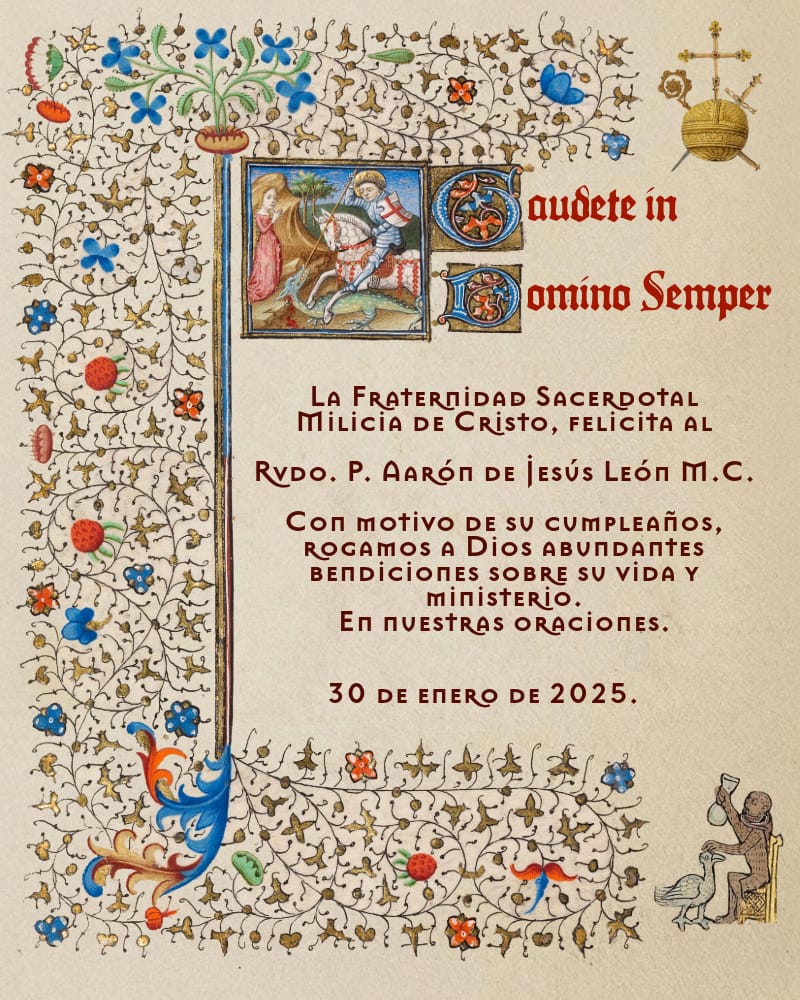 Gaudete in
Domino Semper
La Fraternidad Sacerdotal
Milicia de Cristo, felicita al
Rvdo. P. Aarón de Jesús León M.C.
Con motivo de su cumpleaños,
rogamos a Dios abundantes
bendiciones sobre su vida y
ministerio.
En nuestras oraciones.
30 de enero de 2025.